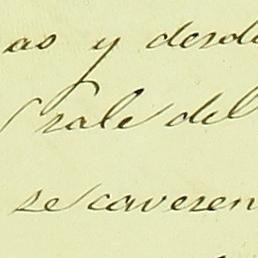 as y desde
sale del
se caveren